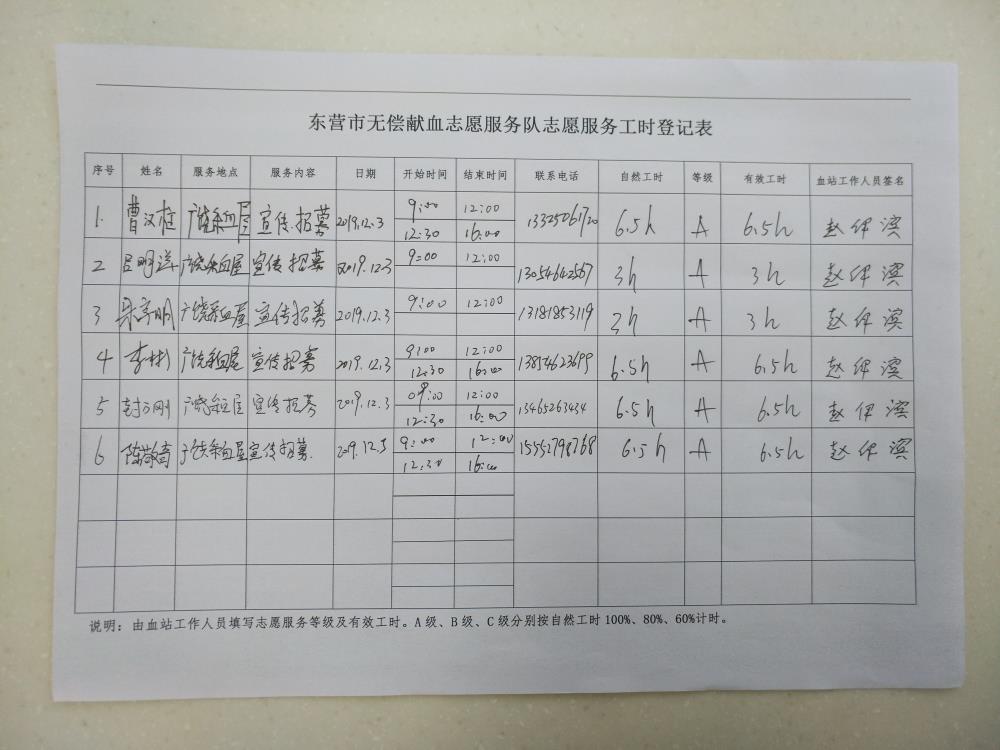 东营市无偿献血志愿服务队志愿服务工时登记表
序号 姓名 服务地点 服务内容 日期 开始时间 结束时间 联系电话 自然工时 等级 有效工时 血站工作人员签名
1. 曹汉 广饶采血屋 宣传.招募 2019.12.3 9:00 12:00 13325061720 6.5h A 6.5h 赵伊滨
12:30 16:00
2 吕明 广饶采血屋 宣传招募 2019.12.3 9:00 12:00 13054642567 3h A 3h 赵伊滨
3 广饶采血屋 宣传招募 2019.12.3 9:00 12:00 13181853119 3h A 3h 赵伊滨
4 李彬 广饶采血屋 宣传招募 2019.12.3 9:00 12:00 13854623699 6.5h A 6.5h 赵伊滨
12:30 16:00
5 封方刚 广饶采血屋 宣传招募 2019.12.3 09:00 12:00 13465263434 6.5h A 6.5h 赵伊滨
12:30 16:00
6 陈敬奇 广饶采血屋 宣传招募. 2019.12.3 9:00 12:00 15552798768 6.5h A 6.5h 赵伊滨
12:30 16:00
说明：由血站工作人员填写志愿服务等级及有效工时。A 级、B 级、C 级分别按自然工时 100%、80%、60%计时。